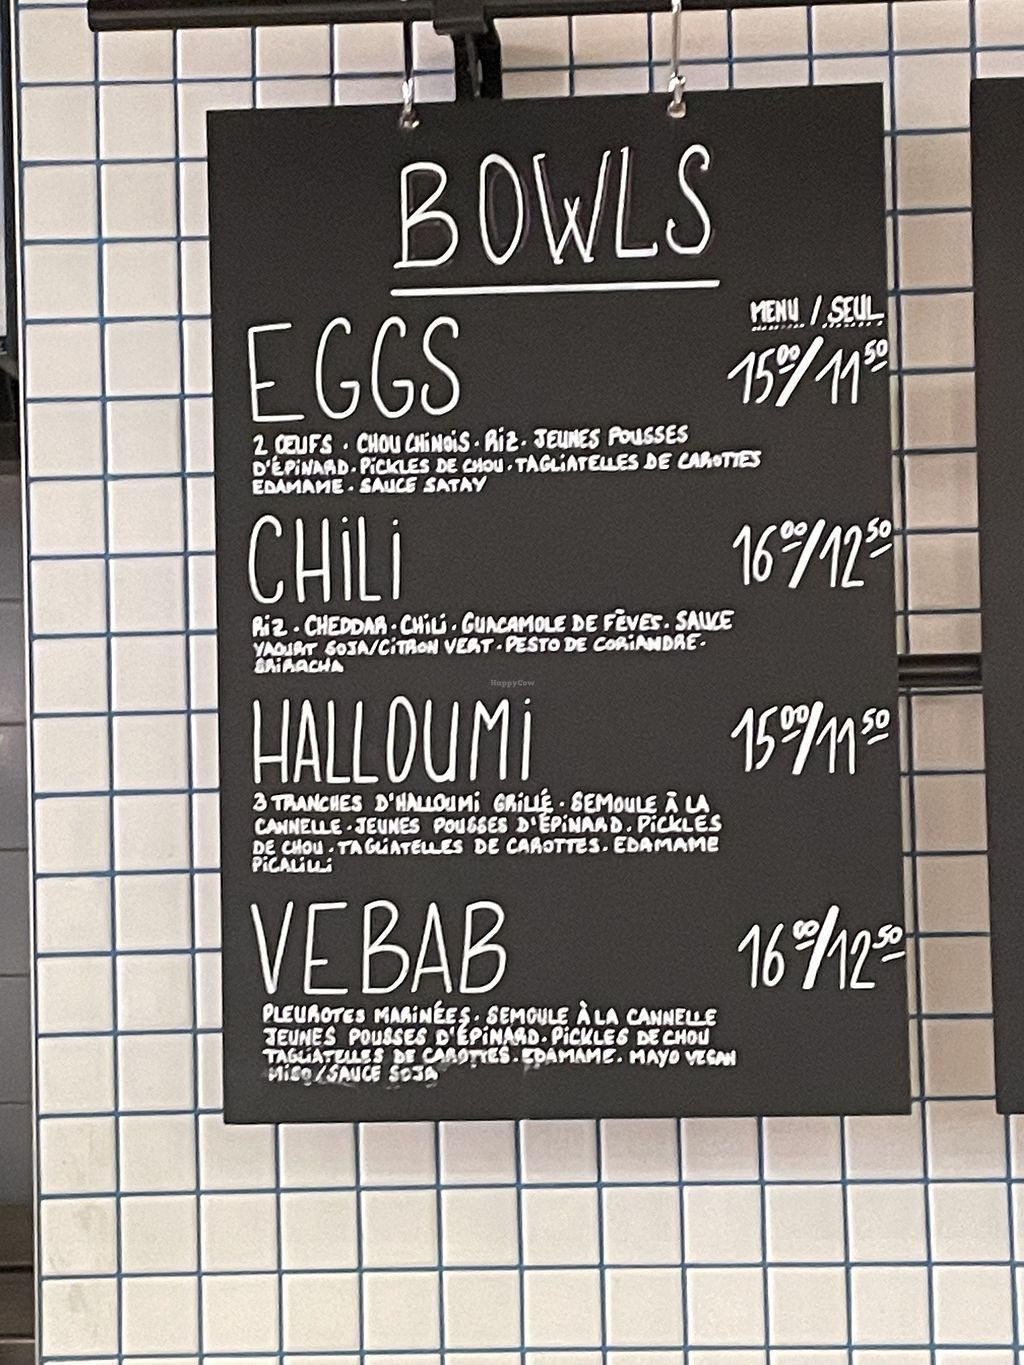 BOWLS
MENU / SEUL
EGGS 15⁰⁰/11⁵⁰
2 ŒUFS . CHOU CHINOIS . RIZ . JEUNES POUSSES
D'ÉPINARD . PICKLES DE CHOU . TAGLIATELLES DE CAROTTES
EDAMAME . SAUCE SATAY
CHILI 16⁰⁰/12⁵⁰
RIZ . CHEDDAR . CHILI . GUACAMOLE DE FÈVES . SAUCE
YAOURT SOJA/CITRON VERT . PESTO DE CORIANDRE .
SRIRACHA
HappyCow
HALLOUMI 15⁰⁰/11⁵⁰
3 TRANCHES D'HALLOUMI GRILLÉ . SEMOULE À LA
CANNELLE . JEUNES POUSSES D'ÉPINARD . PICKLES
DE CHOU . TAGLIATELLES DE CAROTTES . EDAMAME
PICALILLI
VEBAB 16⁰⁰/12⁵⁰
PLEUROTES MARINÉES . SEMOULE À LA CANNELLE
JEUNES POUSSES D'ÉPINARD . PICKLES DE CHOU
TAGLIATELLES DE CAROTTES . EDAMAME . MAYO VEGAN
MISO/SAUCE SOJA